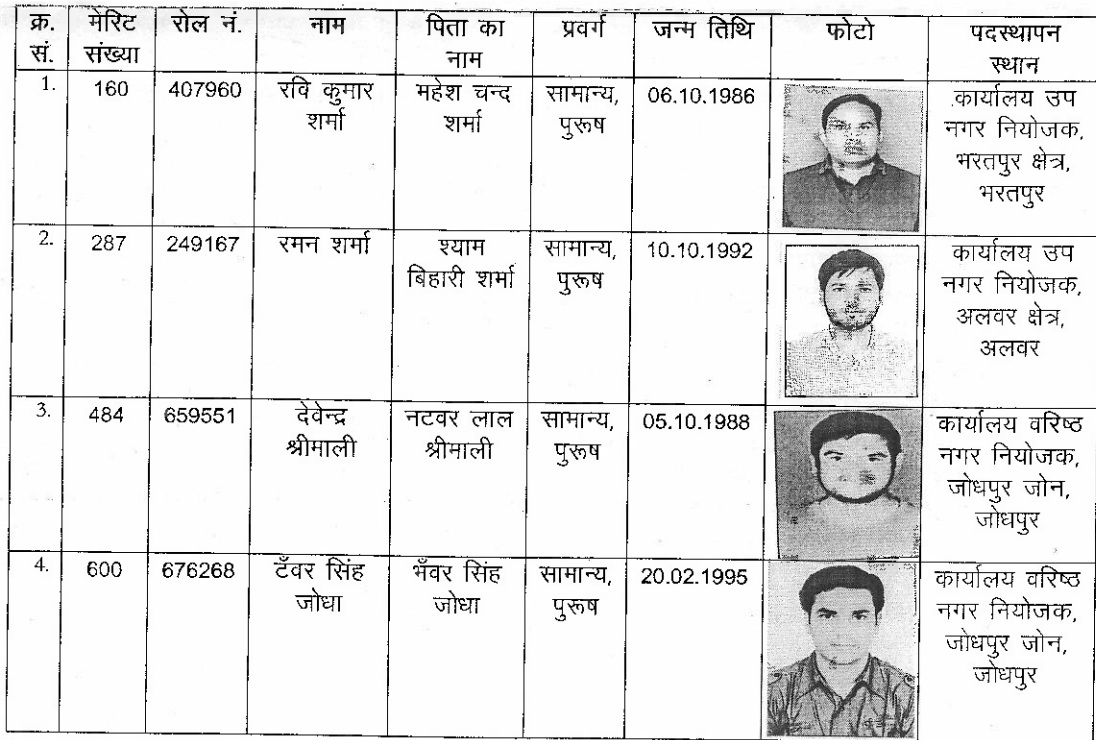 क्र. सं. मेरिट संख्या रोल नं. नाम पिता का नाम प्रवर्ग जन्म तिथि फोटो पदस्थापन स्थान
1. 160 407960 रवि कुमार शर्मा महेश चन्द शर्मा सामान्य, पुरूष 06.10.1986 कार्यालय उप नगर नियोजक, भरतपुर क्षेत्र, भरतपुर
2. 287 249167 रमन शर्मा श्याम बिहारी शर्मा सामान्य, पुरूष 10.10.1992 कार्यालय उप नगर नियोजक, अलवर क्षेत्र, अलवर
3. 484 659551 देवेन्द्र श्रीमाली नटवर लाल श्रीमाली सामान्य, पुरूष 05.10.1988 कार्यालय वरिष्ठ नगर नियोजक, जोधपुर जोन, जोधपुर
4. 600 676268 टँवर सिंह जोधा भँवर सिंह जोधा सामान्य, पुरूष 20.02.1995 कार्यालय वरिष्ठ नगर नियोजक, जोधपुर जोन, जोधपुर